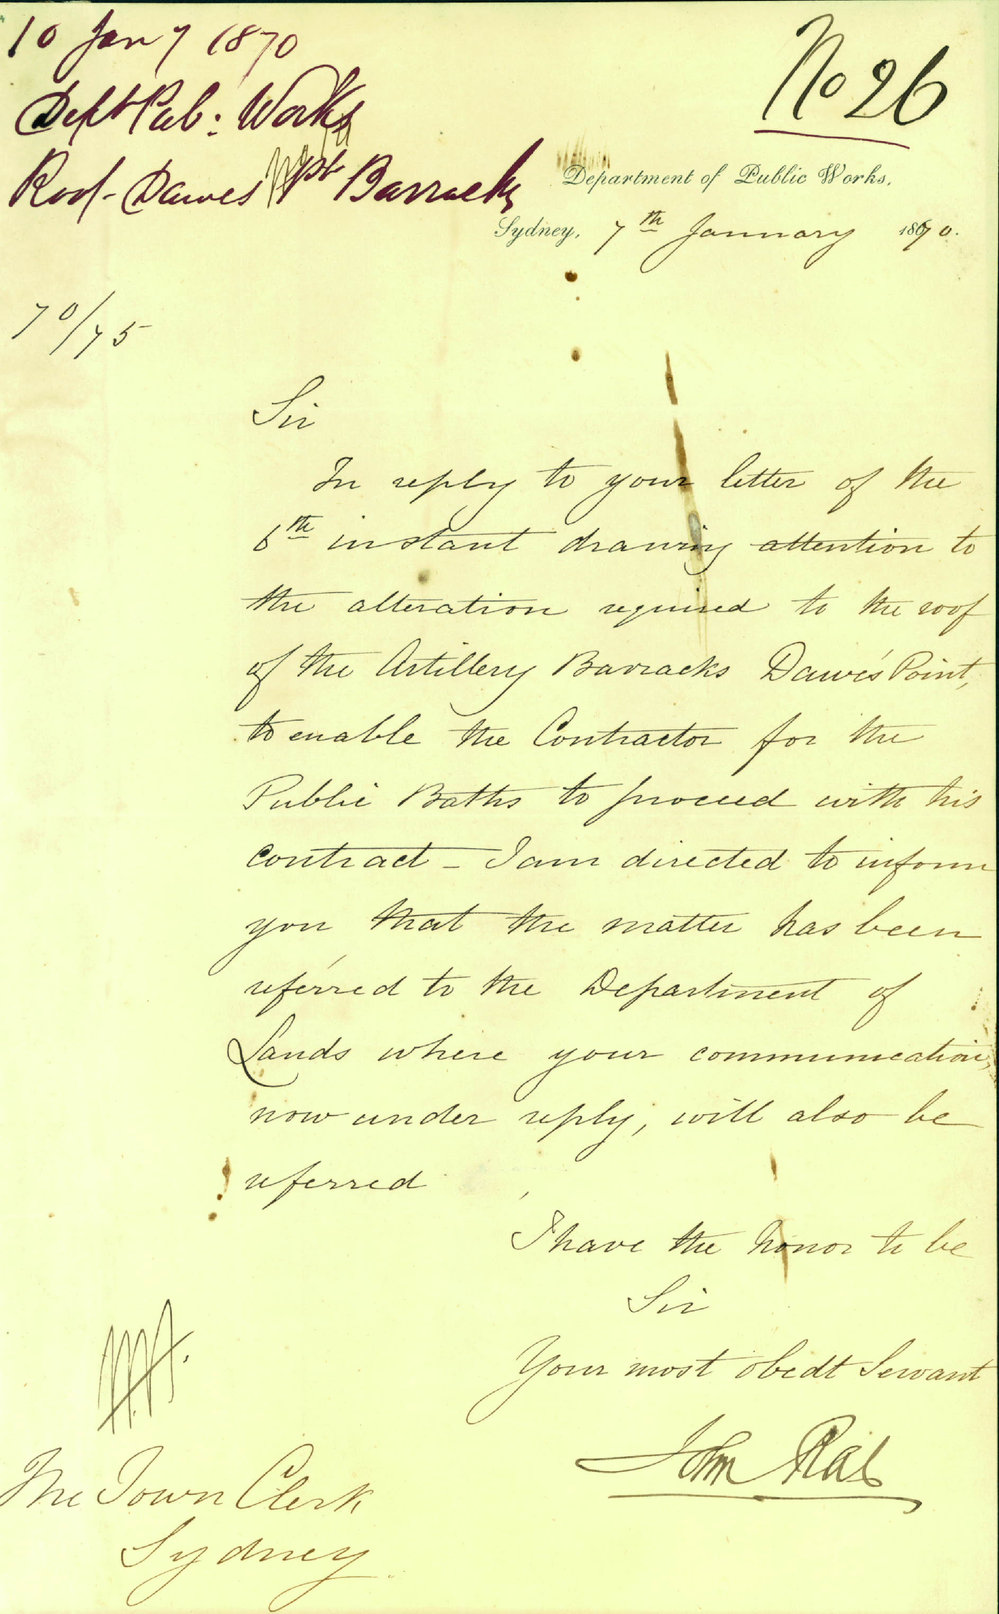 10 Jany 1870
Dept Pub: Works
Roof - Dawes Pt Barracks
No 26
Department of Public Works,
Sydney, 7th January 1870.
70/75
Sir
In reply to your letter of the
6th instant drawing attention to
the alteration required to the roof
of the Artillery Barracks Dawe's Point,
to enable the Contractor for the
Public Baths to proceed with his
contract - I am directed to inform
you that the matter has been
referred to the Department of
Lands where your communication,
now under reply, will also be
referred
I have the honor to be
Sir
Your most obedt Servant
John Rae
The Town Clerk
Sydney